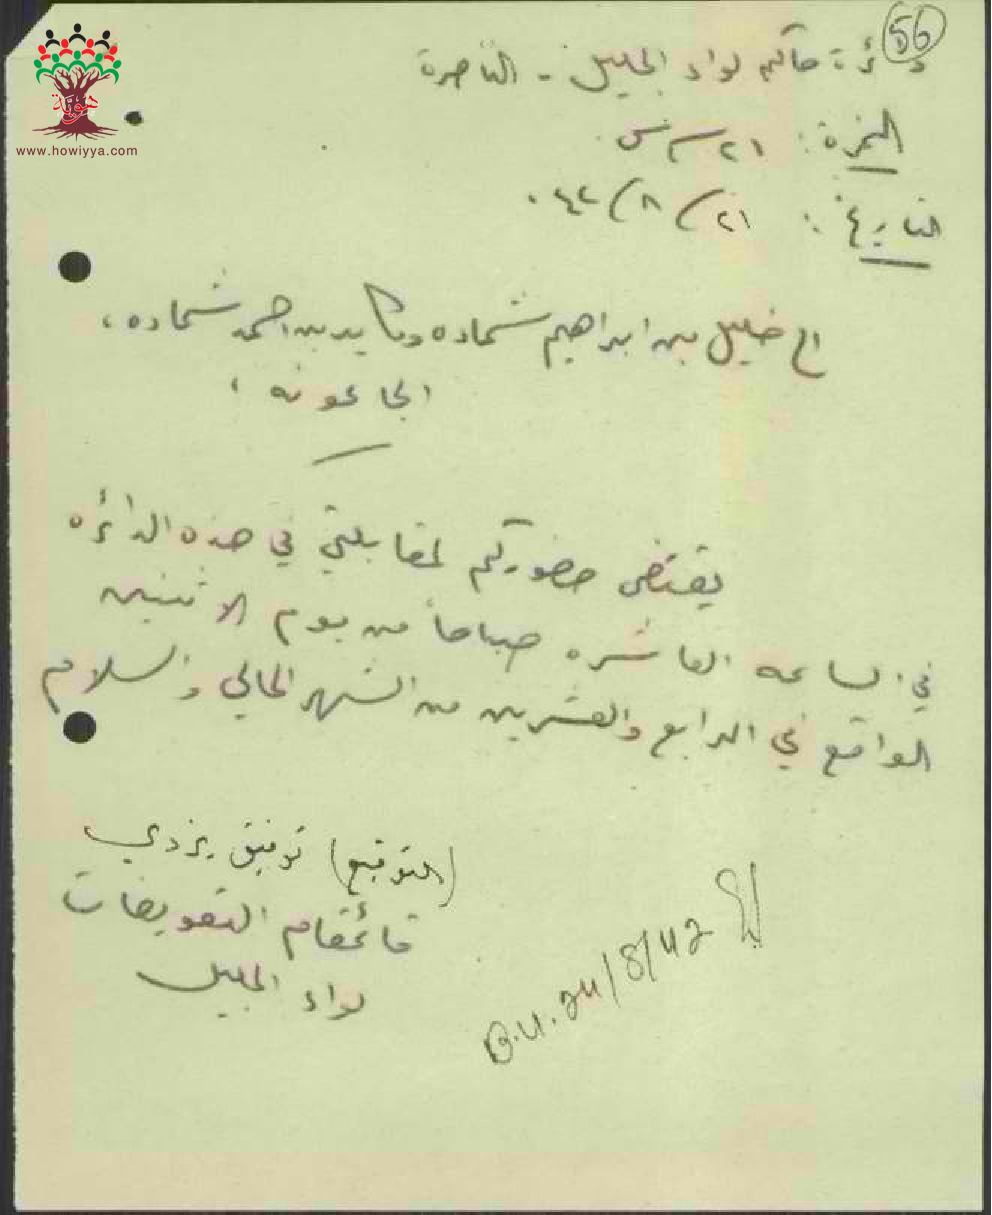 56
دائرة حاكم لواء الجليل - الناصرة
هوية
www.howiyya.com
النمرة:
التاريخ: ٢١/٨/٤٢.
الى خليل بن ابراهيم شحاده وكايد بن احمد شحاده،
الجاعونه،
يقتضي حضوركم لمقابلتي في هذه الدائره
في الساعه العاشره صباحاً من يوم الاثنين
الواقع في الرابع والعشرين من الشهر الحالي والسلام
(التوقيع) توفيق يزدي
قائمقام التعويضات
لواء الجليل
B.U. 24/8/42